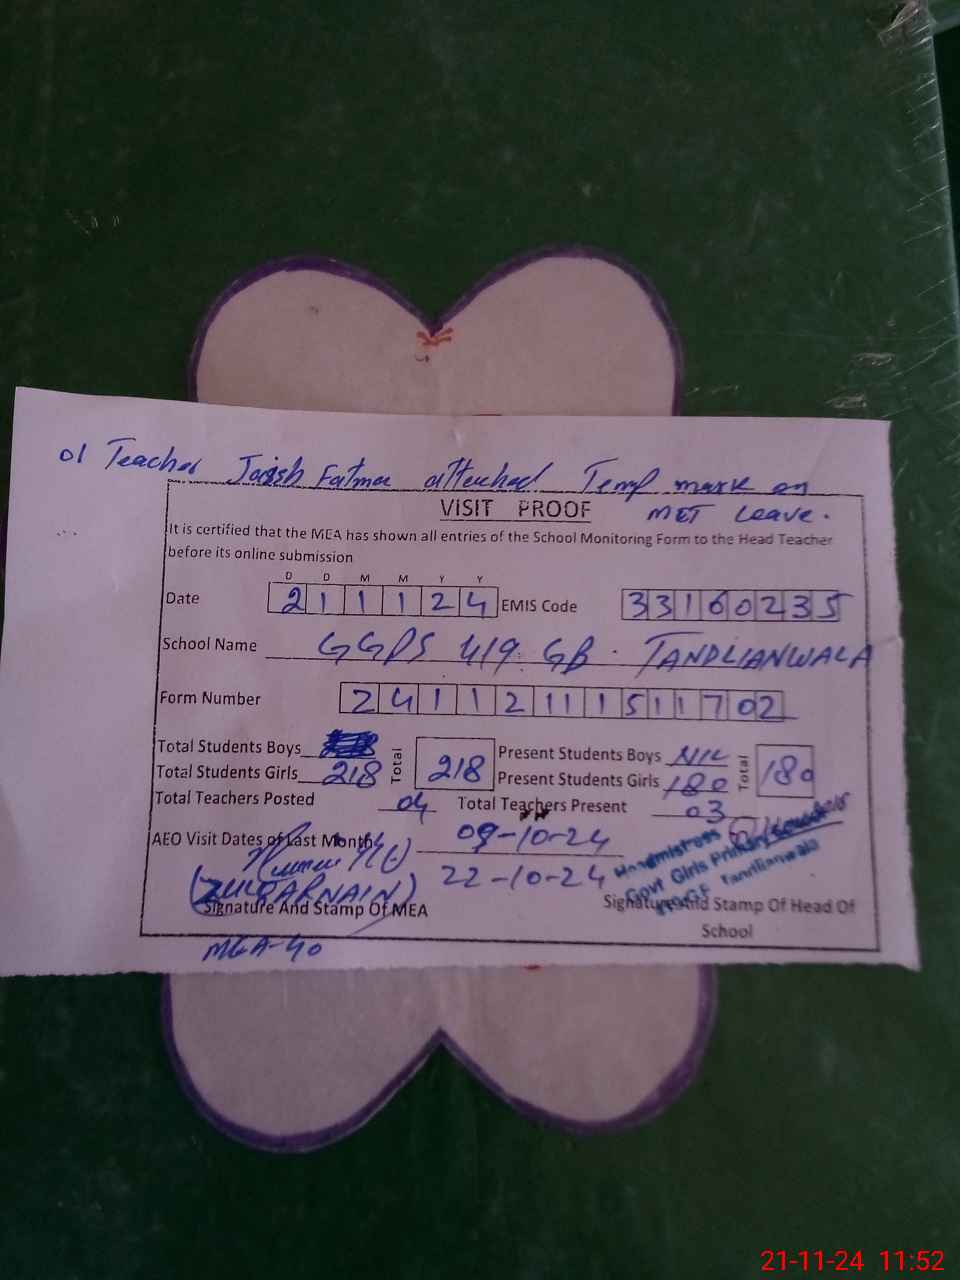 01 Teacher Javish Fatma attached Temp mark on
MET Leave.
VISIT PROOF
It is certified that the MEA has shown all entries of the School Monitoring Form to the Head Teacher
before its online submission
D D M M Y Y
Date 2 1 1 1 2 4 EMIS Code 3 3 1 6 0 2 3 5
School Name GGPS 419 GB. TANDLIANWALA
Form Number 2 4 1 1 2 1 1 1 5 1 1 7 0 2
Total Students Boys Total 218 Present Students Boys NIL Total 180
Total Students Girls 218 Present Students Girls 180
Total Teachers Posted 04 Total Teachers Present 03
AEO Visit Dates of Last Month 09-10-24
22-10-24
(ZULQARNAIN)
Headmistress
Govt Girls Primary School
Tandlianwala
Signature And Stamp Of MEA Signature And Stamp Of Head Of
School
MEA-40
21-11-24 11:52